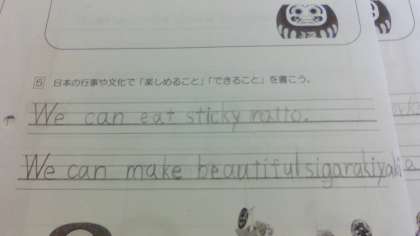 5 日本の行事や文化で「楽しめること」「できること」を書こう。
We can eat sticky natto.
We can make beautiful sigarakiyaki a